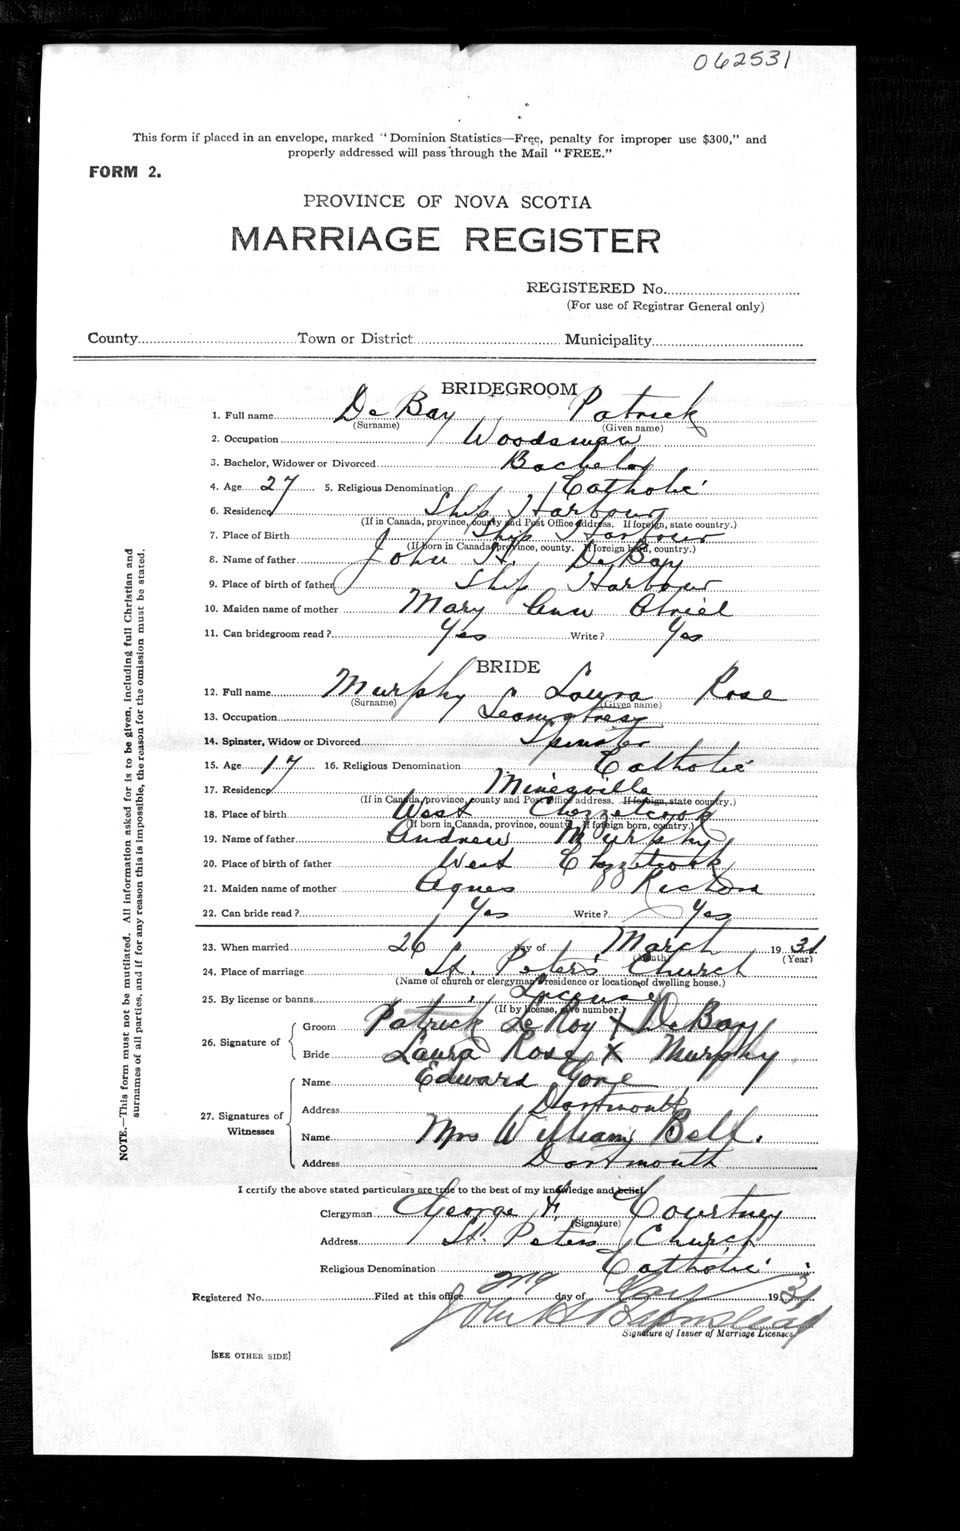 062531
This form if placed in an envelope, marked "Dominion Statistics—Free, penalty for improper use $300," and
properly addressed will pass through the Mail "FREE."
FORM 2.
PROVINCE OF NOVA SCOTIA
MARRIAGE REGISTER
REGISTERED No.
(For use of Registrar General only)
County Town or District Municipality
BRIDEGROOM
1. Full name De Bay Patrick
(Surname) (Given name)
2. Occupation Woodsman
3. Bachelor, Widower or Divorced Bachelor
4. Age 27 5. Religious Denomination Catholic
6. Residence Ship Harbour
(If in Canada, province, county and Post Office address. If foreign, state country.)
7. Place of Birth Ship Harbour
(If born in Canada, province, county. If foreign born, country.)
8. Name of father John H. DeBay
9. Place of birth of father Ship Harbour
10. Maiden name of mother Mary Ann
11. Can bridegroom read? Yes Write? Yes
BRIDE
12. Full name Murphy Laura Rose
(Surname) (Given name)
13. Occupation
14. Spinster, Widow or Divorced Spinster
15. Age 17 16. Religious Denomination Catholic
17. Residence Minesville
(If in Canada, province, county and Post Office address. If foreign, state country.)
18. Place of birth West Chezzetcook
(If born in Canada, province, county. If foreign born, country.)
19. Name of father Andrew Murphy
20. Place of birth of father West Chezzetcook
21. Maiden name of mother Agnes
22. Can bride read? Yes Write? Yes
23. When married 26 day of March 1931
(Month) (Year)
24. Place of marriage St. Peter's Church
(Name of church or clergyman's residence or location of dwelling house.)
25. By license or banns License
(If by license, give number.)
26. Signature of Groom Patrick LeRoy X DeBay
Bride Laura Rose X Murphy
27. Signatures of Witnesses
Name Edward Gore
Address Dartmouth
Name Mrs William Bell.
Address Dartmouth
I certify the above stated particulars are true to the best of my knowledge and belief.
Clergyman George F. Courtney
(Signature)
Address St. Peters Church
Religious Denomination Catholic
Registered No. Filed at this office day of 1931
Signature of Issuer of Marriage Licenses.
[SEE OTHER SIDE]
NOTE.—This form must not be mutilated. All information asked for is to be given, including full Christian and
surnames of all parties, and if for any reason this is impossible, the reason for the omission must be stated.